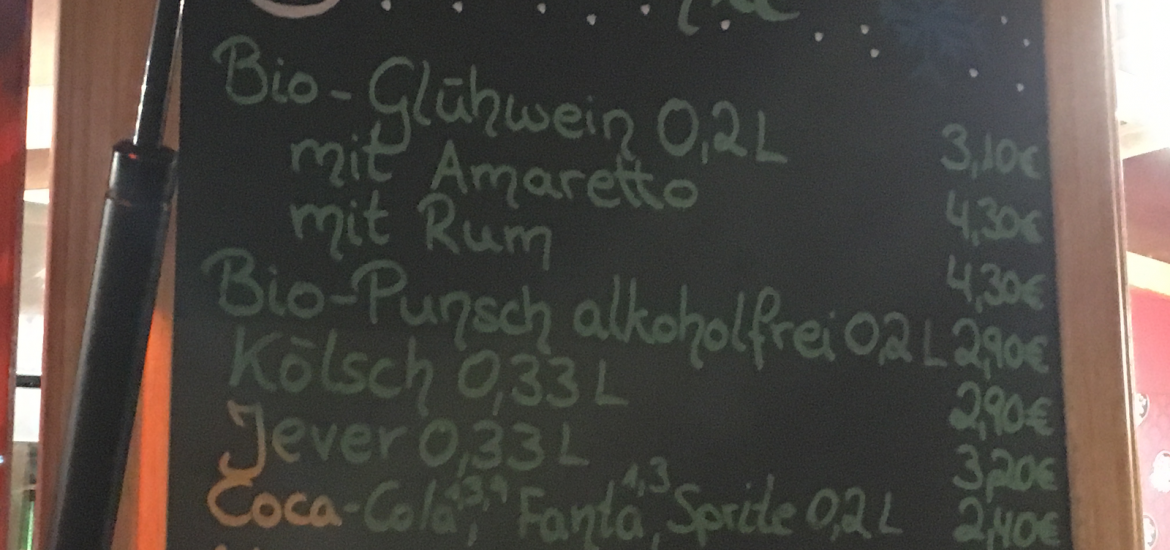 Bio-Glühwein 0,2 L 3,10€
mit Amaretto 4,30€
mit Rum 4,30€
Bio-Punsch alkoholfrei 0,2 L 2,90€
Kölsch 0,33 L 2,90€
Jever 0,33 L 3,20€
Coca-Cola, Fanta 1,3, Sprite 0,2 L 2,40€